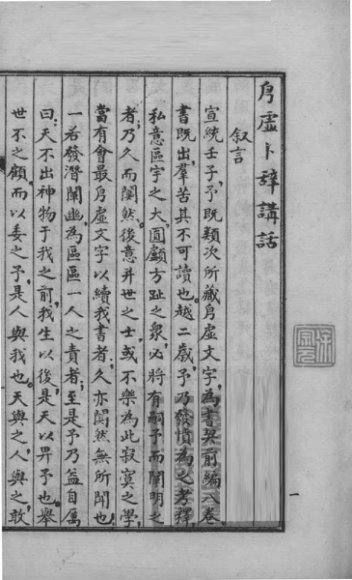 㕣虛卜辭講話
叙言
宣統壬子予既類次所藏㕣虛文字為書契前編八卷
書既出羣苦其不可讀也越二歲予乃發憤為之考釋
私意區宇之大圓顱方趾之衆必將有嗣予而闡明之
者乃久而闃然後意并世之士或不樂為此寂寞之學
當有會最㕣虛文字以續我書者久亦闃然無所聞也
一若發潛闡幽為區區一人之責者至是予乃益自厲
曰天不出神物于我之前我生以後是天以畀予也舉
世不之顧而以委之予是人與我也天與之人與之敢
一